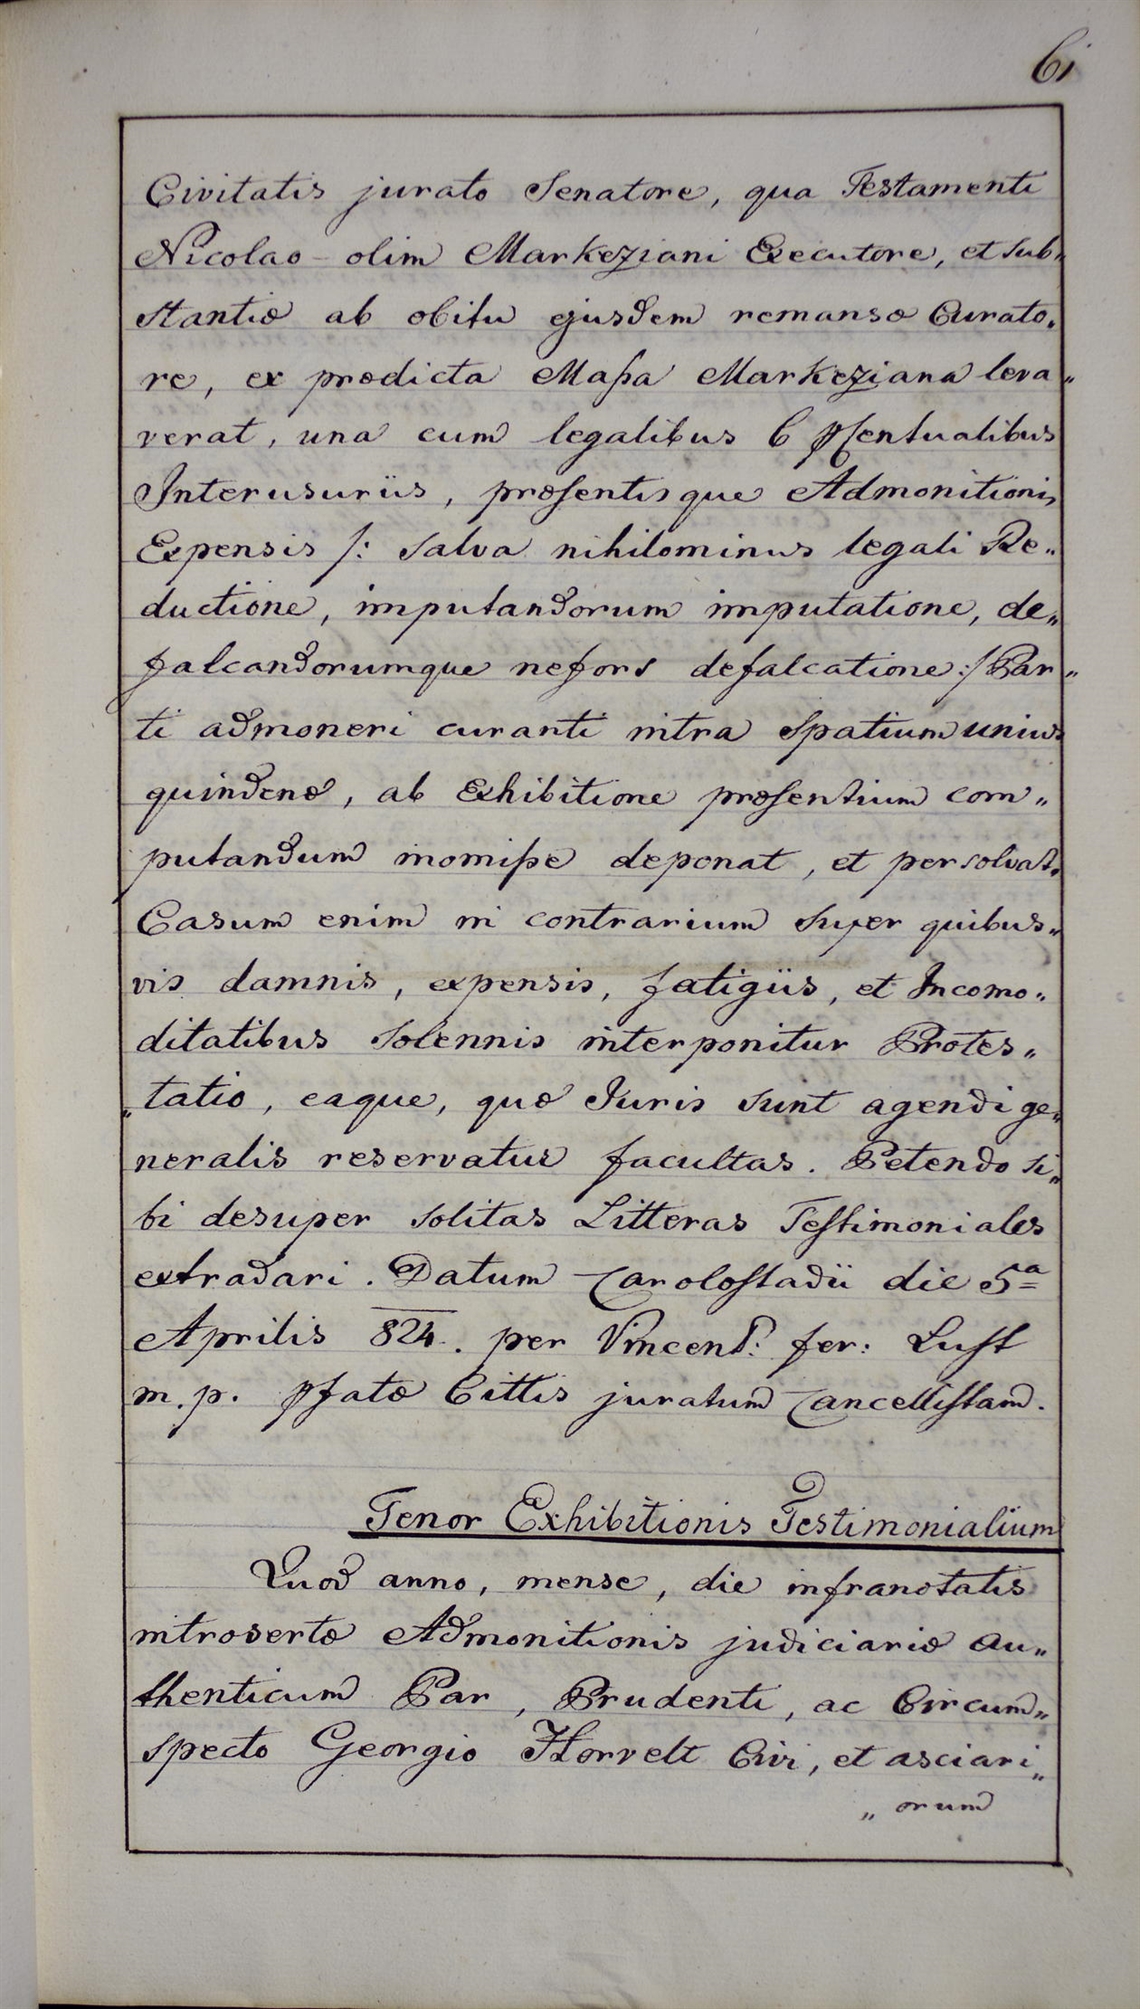 61
Civitatis jurato Senatore, qua Testamenti
Nicolao olim Markeziani Executore, et Sub„
stantiæ ab obitu ejusdem remansæ Curato„
re, ex prædicta Maßa Markeziana leva„
verat, una cum legalibus 6 pCentualibus
Interusuriis, præsentisque Admonitionis
Expensis /: Salva nihilominus legali Re„
ductione, imputandorum imputatione, de„
falcandorumque nefors defalcatione :/ Par„
ti admoneri curanti intra Spatium unius
quindenæ, ab Exhibitione præsentium com„
putandum inomiße deponat, et persolvat.
Casum enim in contrarium Super quibus„
vis damnis, expensis, fatigiis, et Incomo„
ditatibus Solennis interponitur Protes„
„tatio, eaque, quæ Juris sunt agendi ge„
neralis reservatur facultas. Petendo si„
bi desuper solitas Litteras Testimoniales
extradari. Datum Carolostadii die 5ª
Aprilis 824. per Vincent: fer: Lust
m. p. pfatæ Cittis juratum Cancellistam.
Tenor Exhibitionis Testimonialium
Quod anno, mense, die infranotatis
introsertæ Admonitionis judiciariæ au„
thenticum Par, Prudenti, ac Circum„
specto Georgio Horvelt Civi, et asciari„
„orum